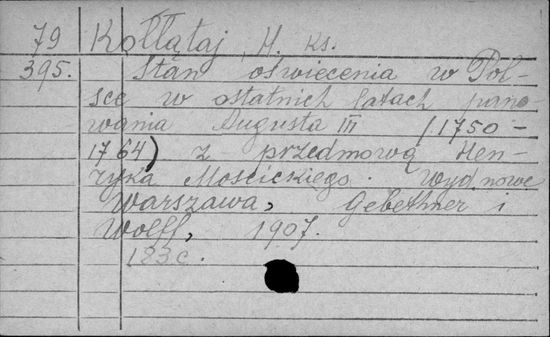 79 Kołłątaj, H. ks.
395. Stan oświecenia w Pol-
sce w ostatnich latach pano-
wania Augusta III (1750-
1764) z przedmową Hen-
ryka Mościckiego. Wyd. nowe
Warszawa, Gebethner i
Wolff, 1907.
123 c.